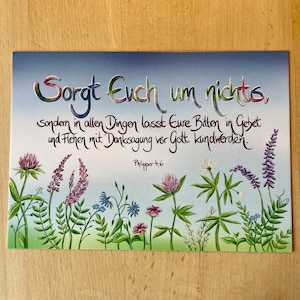 Sorgt Euch um nichts,
sondern in allen Dingen lasst Eure Bitten in Gebet
und Flehen mit Danksagung vor Gott kundwerden.
Philipper 4:6